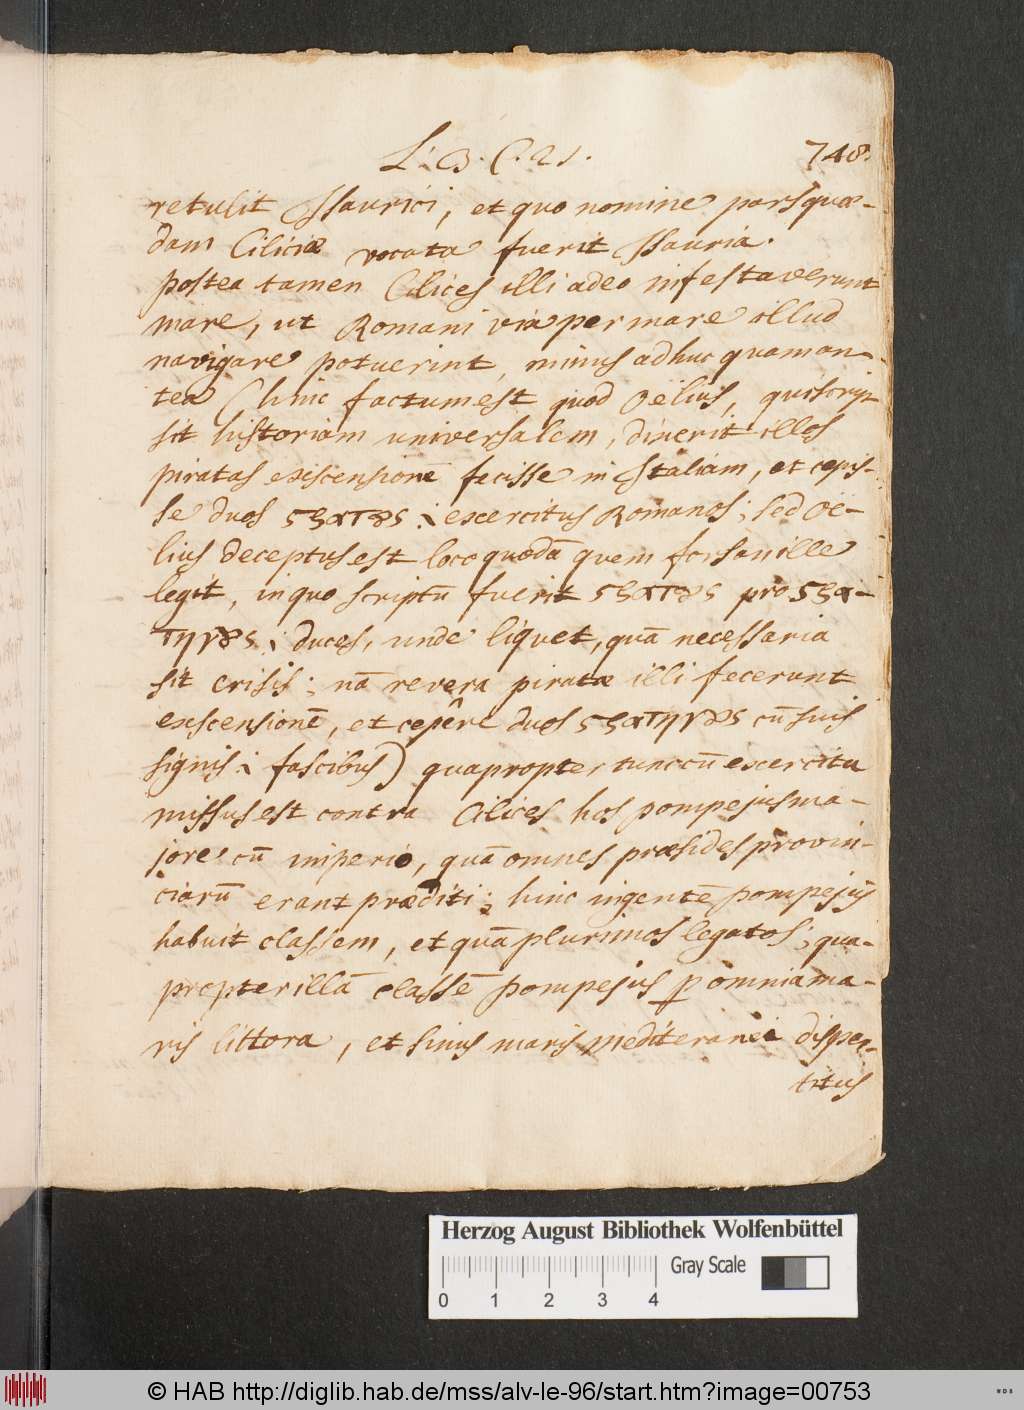 L. 3. C. 21.
748.
retulit Isaurici, et quo nomine pars quæ-
dam Ciliciæ vocata fuerit Isauria.
postea tamen Cilices illi adeo infestaverunt
mare, ut Romani vix per mare illud
navigare potuerint, minus adhuc quam an-
tea (hinc factum est quod Oelius, qui scrip
sit historiam universalem, dixerit illos
piratas exiscensionē fecisse in Italiam, et cepis-
se duos ςϛατȣς .i. exercitus Romanos; sed Oe-
lius deceptus est loco quodā quem forsan ille
legit, in quo scriptū fuerit ςϛατȣς pro ςϛα-
τηγȣς .i. duces, unde liquet, quā necessaria
sit crisis; nā revera piratæ illi fecerunt
exscensionē, et cepêre duos ςϛατηγȣς cū suis
signis .i. fascibus) quapropter tunc cū exercitu
missus est contra Cilices hos pompejus ma-
jore cū imperio, quā omnes præsides provin-
ciarū erant præditi; hinc ingentē pompejus
habuit classem, et quā plurimos legatos; qua-
propter illā classē pompejus p omnia ma-
ris littora, et sinus maris mediteranei disper-
titus
Herzog August Bibliothek Wolfenbüttel
Gray Scale
0 1 2 3 4
© HAB http://diglib.hab.de/mss/alv-le-96/start.htm?image=00753